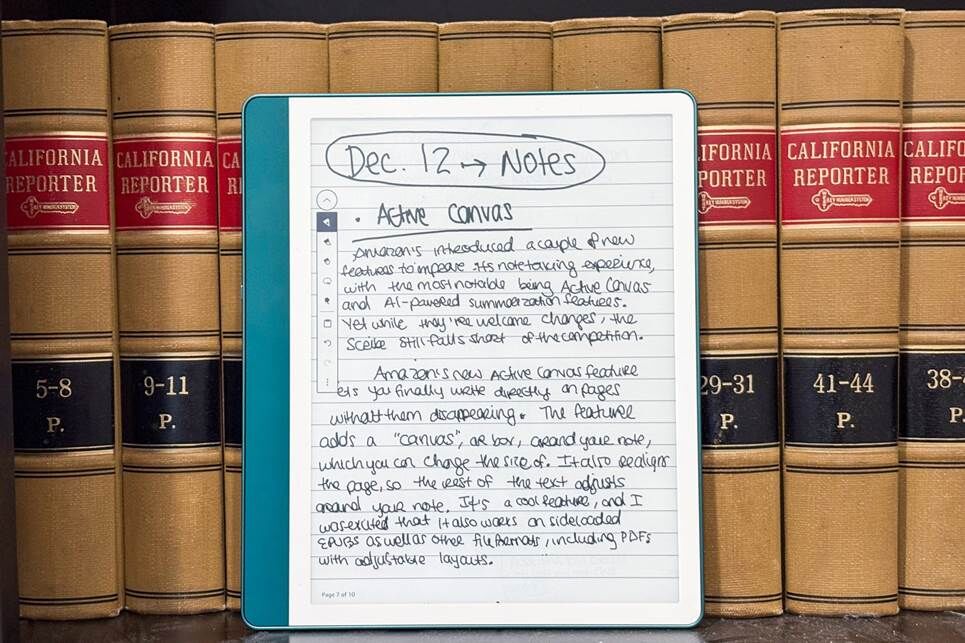 CALIFORNIA
REPORTER
KEY NUMBER SYSTEM
5-8
P.
CALIFORNIA
REPORTER
KEY NUMBER SYSTEM
9-11
P.
CA
R
Dec. 12 → Notes
• Active Canvas
Amazon's introduced a couple of new
features to improve its notetaking experience,
with the most notable being Active Canvas
and AI-powered summarization features.
Yet while they're welcome changes, the
Scribe still falls short of the competition.
Amazon's new Active Canvas feature
lets you finally write directly on pages
without them disappearing. The feature
adds a "canvas", or box, around your note,
which you can change the size of. It also realigns
the page, so the rest of the text adjusts
around your note. It's a cool feature, and I
was excited that it also works on sideloaded
EPUBS as well as other file formats, including PDFs
with adjustable layouts.
Page 7 of 10
IFORNIA
PORTER
KEY NUMBER SYSTEM
29-31
P.
CALIFORNIA
REPORTER
KEY NUMBER SYSTEM
41-44
P.
CALIFORN
REPOR
38-
P.